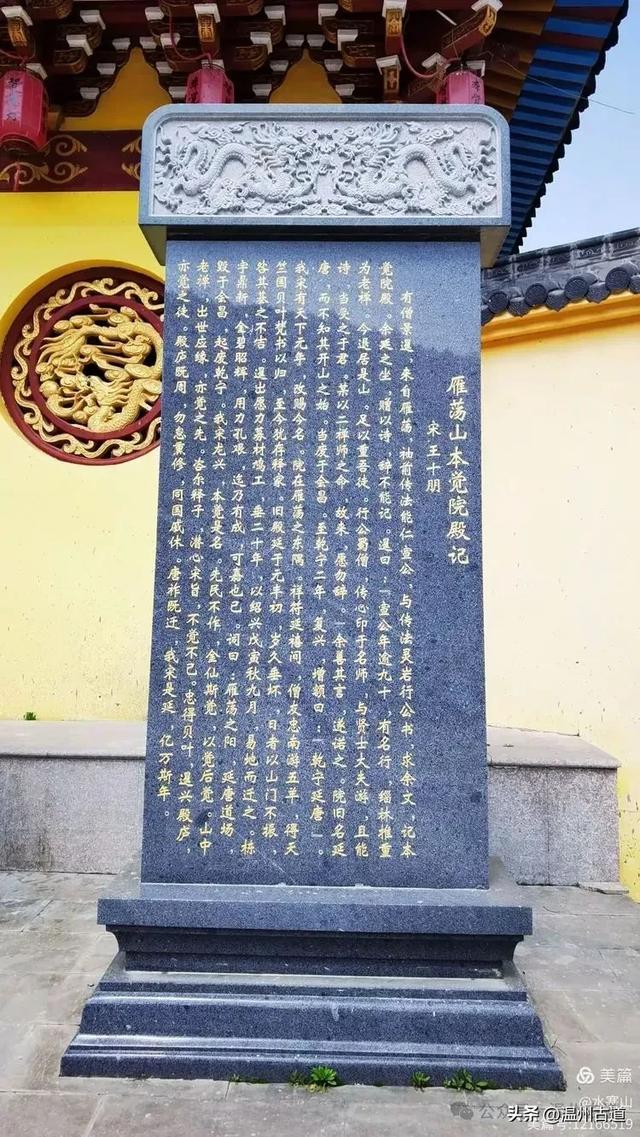 雁荡山本觉院殿记
宋王十朋
有僧景暹，来自雁荡，袖前传法能仁壹公，与传法吴岩行公书，求余文，记本
觉院殿。余延之坐，赠以诗，辞不能记。暹曰：“壹公年逾九十，有名行，缁林推重
为老禅。今退居是山。足以重吾徒。行公蜀僧，传心印于名师，与贤士大夫游，且能
诗，当受之于君，某以二禅师之命，故来，愿勿辞。”余善其言，遂诺之。院旧名延
唐，而不知其开山之始。当废于会昌。至乾宁二年，复兴，增额曰：“乾宁延唐”。
我宋有天下元年，改赐今名。院在雁荡之东隅。祥符延禧间，僧友忠南游五羊，得天
竺国贝叶梵书以归，至今犹存释家。旧殿延于元丰初，岁久垂坏，日者以山门不振，
咎其基之不吉。暹出愿力募材鸠工，垂二十年，以绍兴戊寅秋九月。易地而迁之。栋
宇鼎新，金碧昭辉，用力孔艰，迄乃有成，可嘉也已。词曰：雁荡之阳，延唐道场，
毁于会昌，起废乾宁。我宋龙兴，本觉是名。先民不作，金仙斯觉，以觉后觉。山中
老禅，出世应缘，亦觉之先。咨尔释子，潜心宗旨，不觉不已。忠得贝叶，暹兴殿庐，
亦觉之徒。殿庐既周，勿怠熏修，同国咸休。唐祚既迁，我宋是延，亿万斯年。
美篇
@水寒山
头条 @温州古道
美篇号:12166519